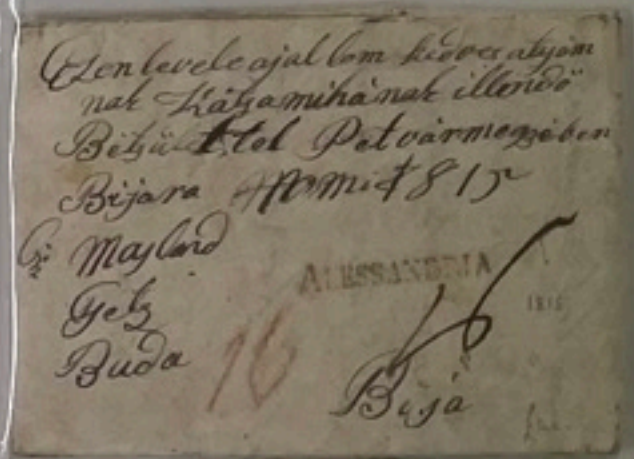 Ezen levele ajal lom kedves atyám
nak Kátsamihának illendö
Betsü lttel Pet vármegyében
Bijara 1815
Mayland
Getz
Buda
ALESSANDRIA
16
1815
16
Bijá